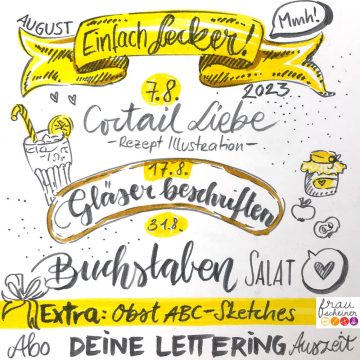 AUGUST
Einfach Lecker!
Mmh!
2023
7.8.
Coctail Liebe
- Rezept Illustration -
17.8.
Gläser beschriften
31.8.
Buchstaben SALAT
Extra: Obst ABC-Sketches
frau
scheiner
Abo DEINE LETTERING Auszeit